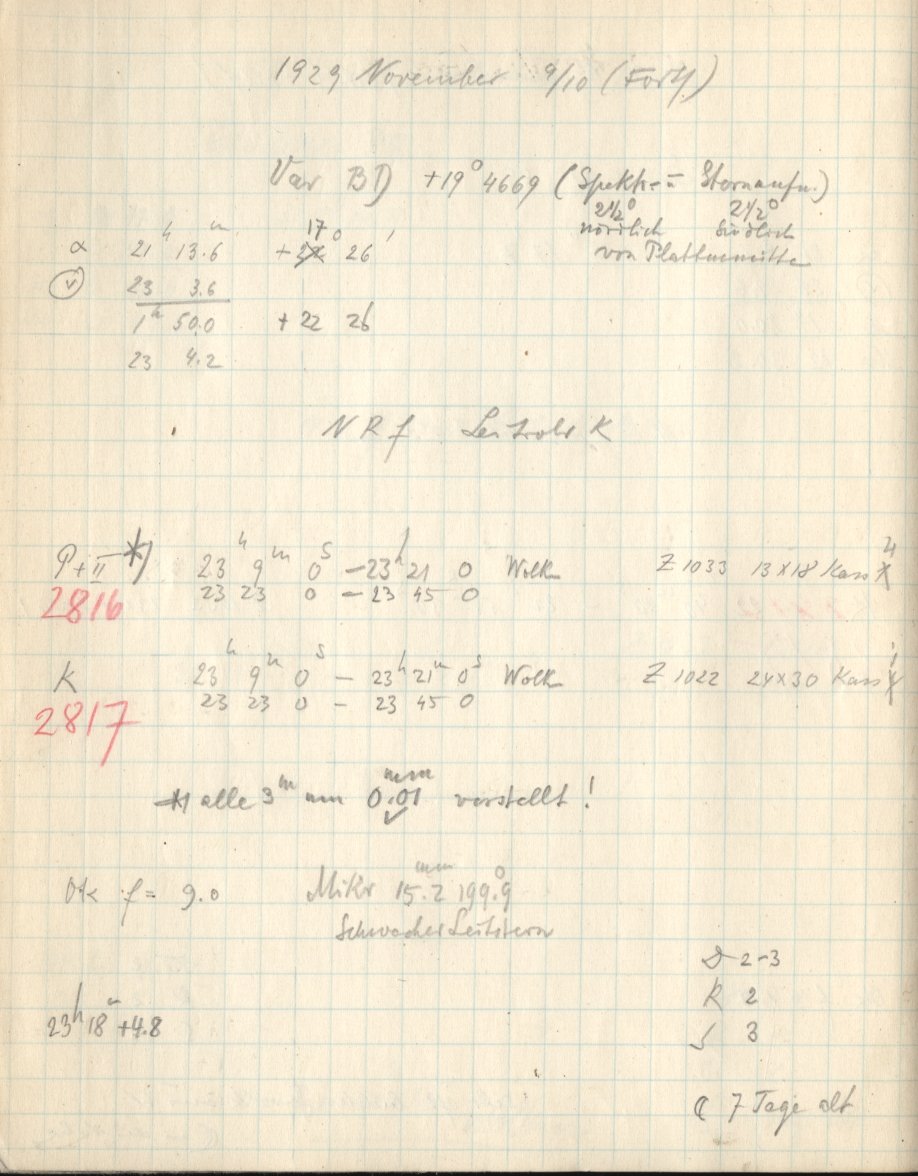 1929 November 9/10 (Forts.)
Var BD +19° 4669 (Spektr- u Sternaufn.)
2½° 2½°
nördlich südlich
von Plattenmitte
α 21h 13.6m +17° 26'
23 3.6
1h 50.0 +22 26
23 4.2
NRf Leitrohr K
P+II *) 23h 9m 0s – 23h 21 0 Wolk Z 1033 13×18 Kass 4
2816 23 23 0 – 23 45 0
K 23h 9m 0s – 23h 21m 0s Wolk Z 1022 24×30 Kass 1
2817 23 23 0 – 23 45 0
*) alle 3m um 0.01mm verstellt!
Ok f = 9.0 Mikr 15.2mm 199.9°
Schwacher Leitstern
D 2-3
R 2
S 3
23h 18m +4.8
☾ 7 Tage alt